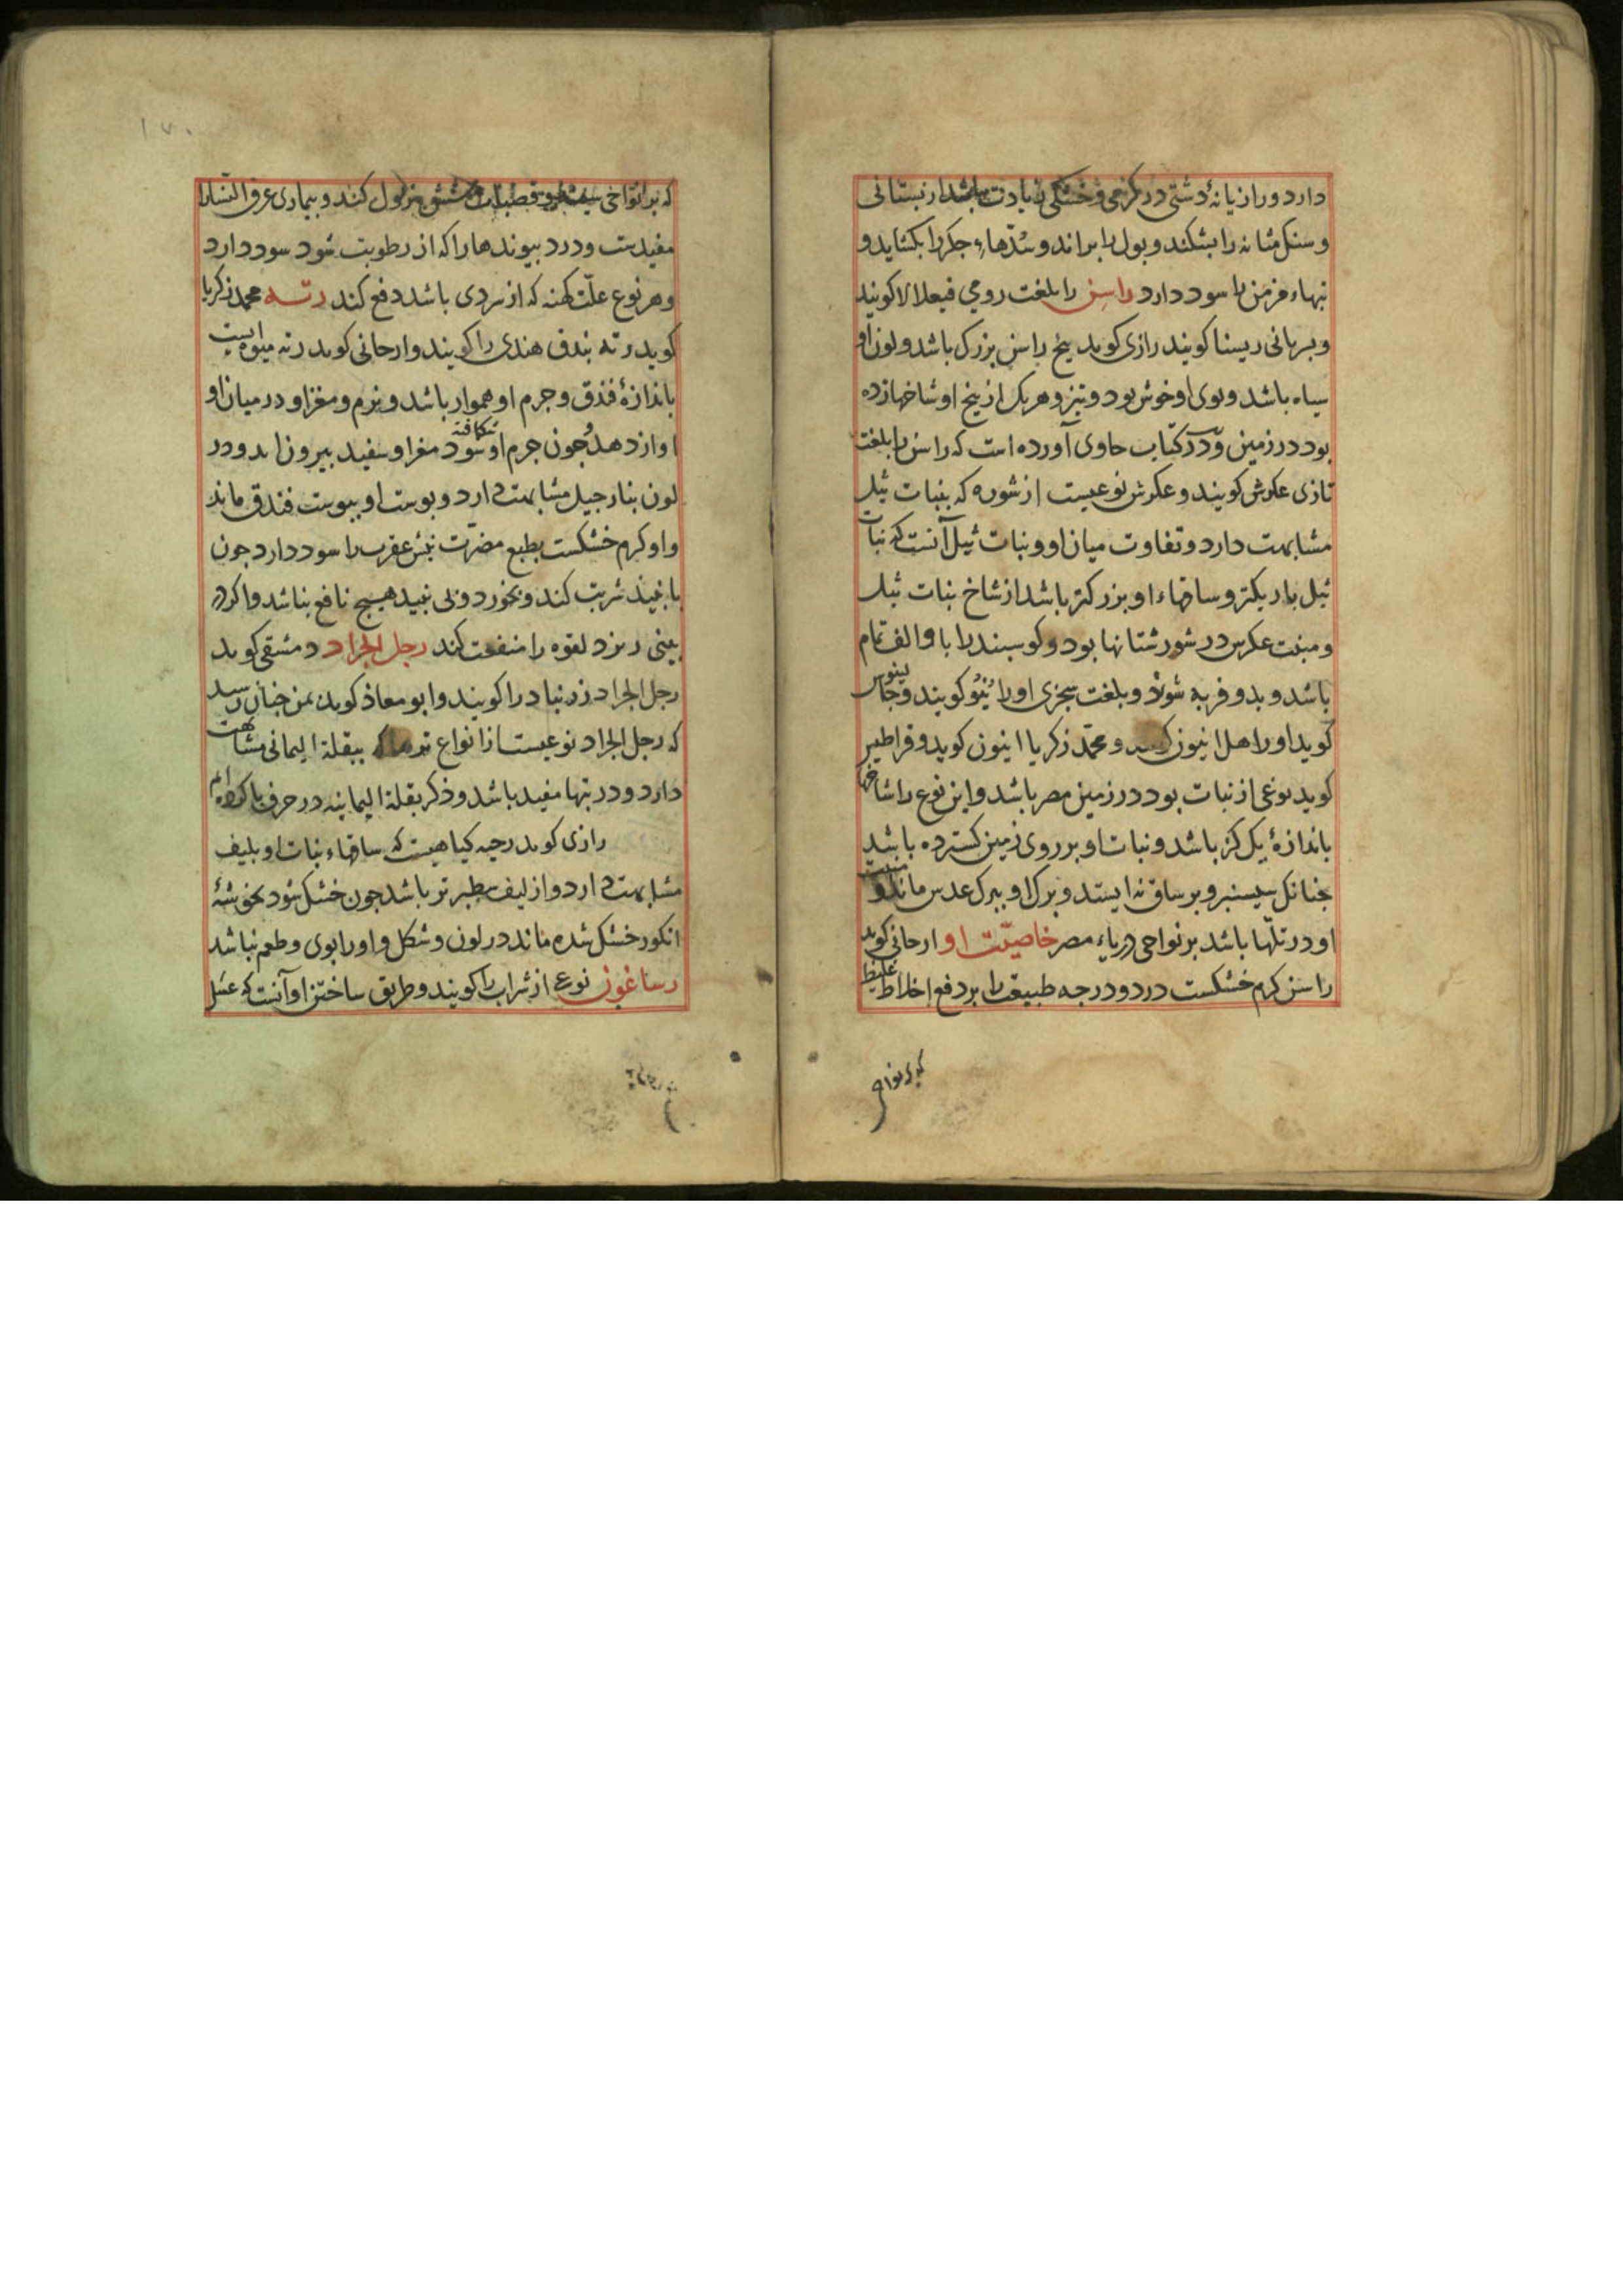 دارد و رازیانهٔ دشتی در کرمی و خشکی زیادت باشد از بستانی
و سنک مثانه را بشکند و بول را براند و سدّهاء جکر را بکشاید و
تبهاء مزمن را سود دارد راسن را بلغت رومی فیعلالا کویند
و سریانی ریسنا کویند رازی کوید بیخ راسن بزرک باشد و لون او
سیاه باشد و بوی او خوش بود و تیز و هر یک از بیخ او شاخها زده
بود در زمین و در کتاب حاوی آورده است که راسن را بلغت
تازی عکرش کویند و عکرش نوعیست از شوره که بنبات ثیل
مشابهت دارد و تفاوت میان او و نبات ثیل آنست که نبات
ثیل باریکتر و ساقهاء او بزرکتر باشد از شاخ نبات ثیل
و منبت عکرش در شورستانها بود و کوسبند را با و الف تمام
باشد و بدو فربه شود و بلغت سجزی او را کویند و جالینوس
کوید او را اهل انیون و محمّد زکریا انیون کوید و قراطیس
کوید نوعی از نبات بود در زمین مصر باشد و این نوع را شاخها
باندازهٔ یک کز باشد و نبات او بر روی زمین کسترده باشد
جنانک سیسنبر و بر ساق نه ایستد و برک او ببرک عدس ماند و منبت
او در تلّها باشد بر نواحی دریاء مصر خاصیّت او ارحانی کوید
راسن کرم خشکست در دو درجه طبیعت را بر دفع اخلاط غلیظ
که بر نواحی
که بر نواحی سینه و قصبات شش نزول کند و بیماری عرق النسا را
مفیدست و درد بیوندها را که از رطوبت شود سود دارد
و هر نوع علّت کهنه که از سردی باشد دفع کند رته محمد زکریا
کوید رته بندق هندی را کویند و ارحانی کوید رته میوه ایست
باندازهٔ فندق و جرم او هموار باشد و نرم و مغز او در میان او
اواز دهد جون جرم او شکافته شود مغز او سفید بیرون اید و در
لون بنارجیل مشابهت دارد و بوست او ببوست فندق ماند
و او کرم خشکست بطبع مضرّت نیش عقرب را سود دارد جون
با نبیذ شربت کند و بخورد و بی نبید هیج نافع نباشد و اکر در
بینی ریزد لقوه را منفعت کند رجل الجراد دمشقی کوید
رجل الجراد زرنباد را کویند و ابو معاذ کوید بمن جنان رسید
که رجل الجراد نوعیست از انواع ببقلة الیمانی مشابهت
دارد و در تبها مفید باشد و ذکر بقلة الیمانیه در حرف با کرده ام
رازی کوید رجیه کیاهیست که ساقهاء نبات او بلیف
مشابهت دارد و از لیف سطبرتر باشد جون خشک شود بخوشهٔ
انکور خشک شده ماند در لون و شکل و او را بوی و طعم نباشد
رساغون نوعی از شراب را کویند و طریق ساختن او آنست که عسل